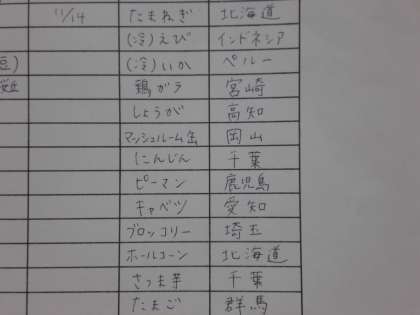 11/14 たまねぎ 北海道
(冷)えび インドネシア
豆) (冷)いか ペルー
鶏ガラ 宮崎
しょうが 高知
マッシュルーム缶 岡山
にんじん 千葉
ピーマン 鹿児島
キャベツ 愛知
ブロッコリー 埼玉
ホールコーン 北海道
さつま芋 千葉
たまご 群馬